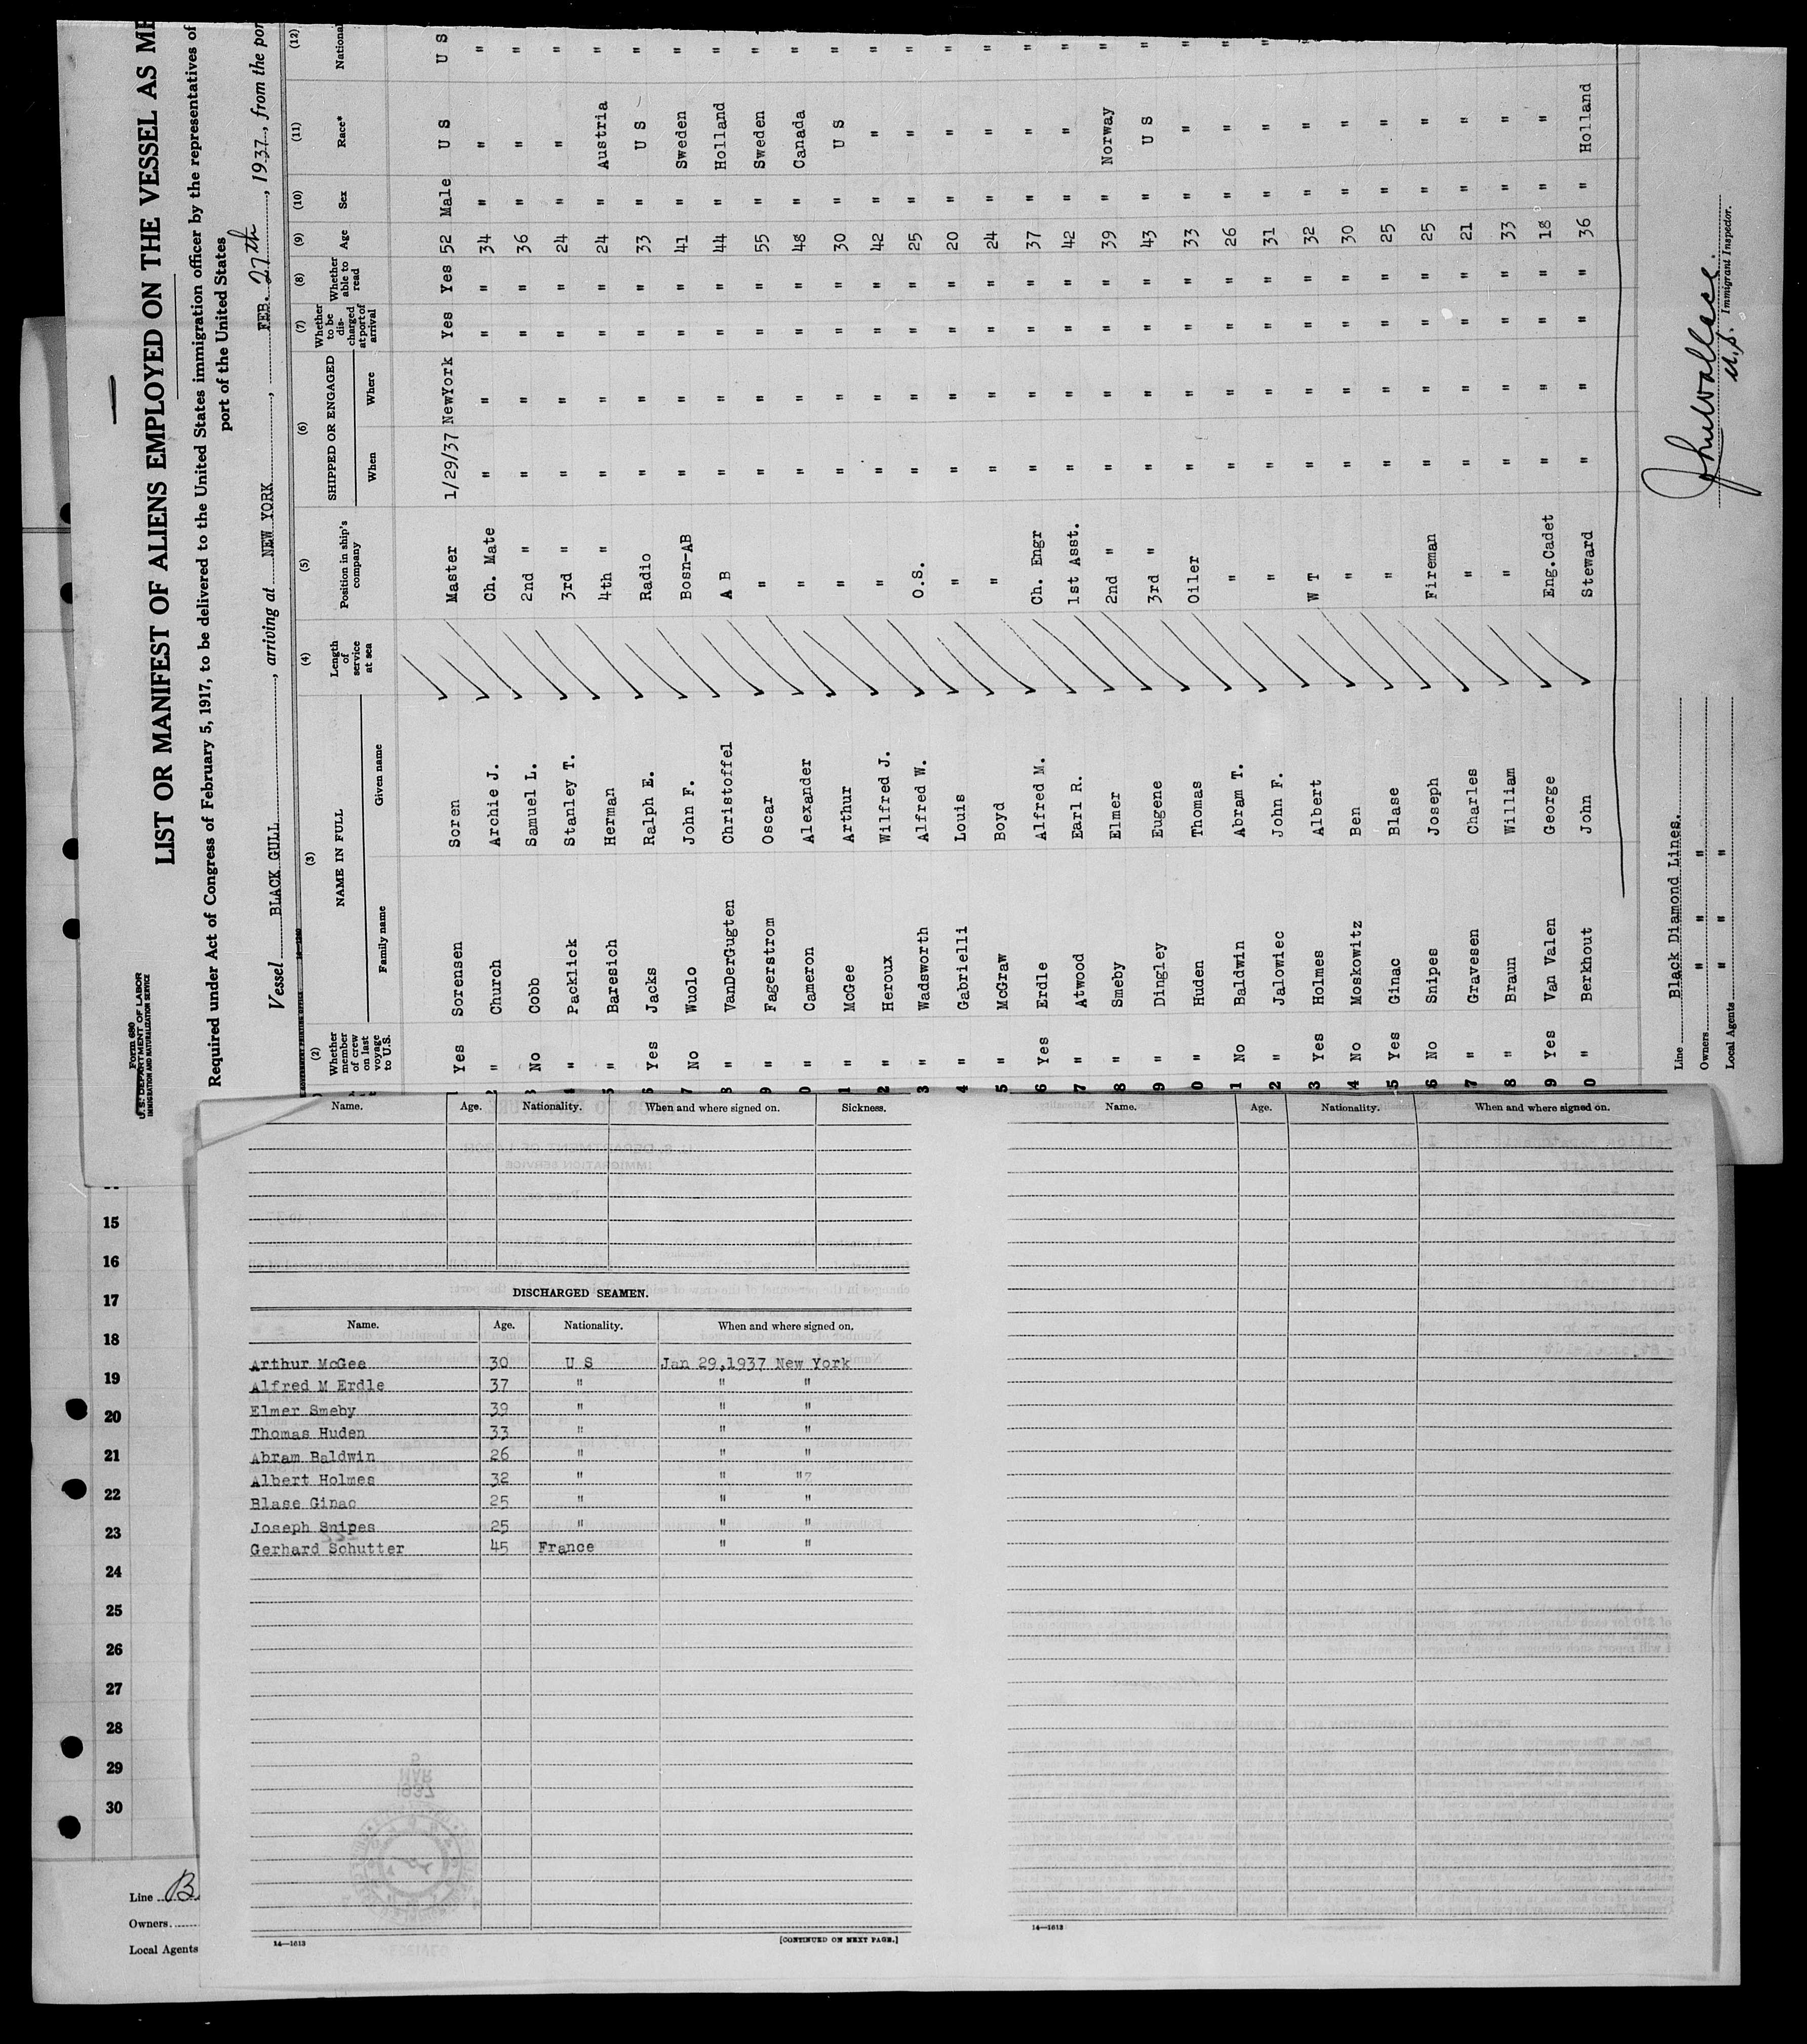 Form 680
U. S. DEPARTMENT OF LABOR
IMMIGRATION AND NATURALIZATION SERVICE
LIST OR MANIFEST OF ALIENS EMPLOYED ON THE VESSEL AS ME
Required under Act of Congress of February 5, 1917, to be delivered to the United States immigration officer by the representatives of
port of the United States
Vessel BLACK GULL, arriving at NEW YORK, FEB. 27th, 1937, from the por
(2) (3) (4) (5) (6) (7) (8) (9) (10) (11) (12)
Whether member of crew on last voyage to U.S. NAME IN FULL Family name Given name Length of service at sea Position in ship's company SHIPPED OR ENGAGED When Where Whether to be discharged at port of arrival Whether able to read Age Sex Race* National
1 Yes Sorensen Soren Master 1/29/37 NewYork Yes Yes 52 Male U S U S
2 " Church Archie J. Ch. Mate " " " " 34 " " "
3 No Cobb Samuel L. 2nd " " " " " 36 " " "
4 " Packlick Stanley T. 3rd " " " " " 24 " " "
5 " Baresich Herman 4th " " " " " 24 " Austria "
6 Yes Jacks Ralph E. Radio " " " " 33 " U S "
7 No Wuolo John F. Bosn-AB " " " " 41 " Sweden "
8 " VanDerGugten Christoffel A B " " " " 44 " Holland "
9 " Fagerstrom Oscar " " " " " 55 " Sweden "
0 " Cameron Alexander " " " " " 48 " Canada "
1 " McGee Arthur " " " " " 30 " U S "
2 " Heroux Wilfred J. " " " " " 42 " " "
3 " Wadsworth Alfred W. O.S. " " " " 25 " " "
4 " Gabrielli Louis " " " " " 20 " " "
5 " McGraw Boyd " " " " " 24 " " "
6 Yes Erdle Alfred M. Ch. Engr " " " " 37 " " "
7 " Atwood Earl R. 1st Asst. " " " " 42 " " "
8 " Smeby Elmer 2nd " " " " " 39 " Norway "
9 " Dingley Eugene 3rd " " " " " 43 " U S "
0 " Huden Thomas Oiler " " " " 33 " " "
1 No Baldwin Abram T. " " " " " 26 " " "
2 " Jalowiec John F. " " " " " 31 " " "
3 Yes Holmes Albert W T " " " " 32 " " "
4 No Moskowitz Ben " " " " " 30 " " "
5 Yes Ginac Blase " " " " " 25 " " "
6 No Snipes Joseph Fireman " " " " 25 " " "
7 " Gravesen Charles " " " " " 21 " " "
8 " Braun William " " " " " 33 " " "
9 Yes Van Valen George Eng.Cadet " " " " 18 " " "
0 " Berkhout John Steward " " " " 36 " Holland "
Line Black Diamond Lines.
Owners " " "
Local Agents " " "
Immigrant Inspector.
Name. Age. Nationality. When and where signed on. Sickness.
DISCHARGED SEAMEN.
Name. Age. Nationality. When and where signed on.
Arthur McGee 30 U S Jan 29,1937 New York
Alfred M Erdle 37 " " "
Elmer Smeby 39 " " "
Thomas Huden 33 " " "
Abram Baldwin 26 " " "
Albert Holmes 32 " " "
Blase Ginac 25 " " "
Joseph Snipes 25 " " "
Gerhard Schutter 45 France " "
14—1613
[CONTINUED ON NEXT PAGE.]
Name. Age. Nationality. When and where signed on.
14—1613
15
16
17
18
19
20
21
22
23
24
25
26
27
28
29
30
Line B
Owners
Local Agents